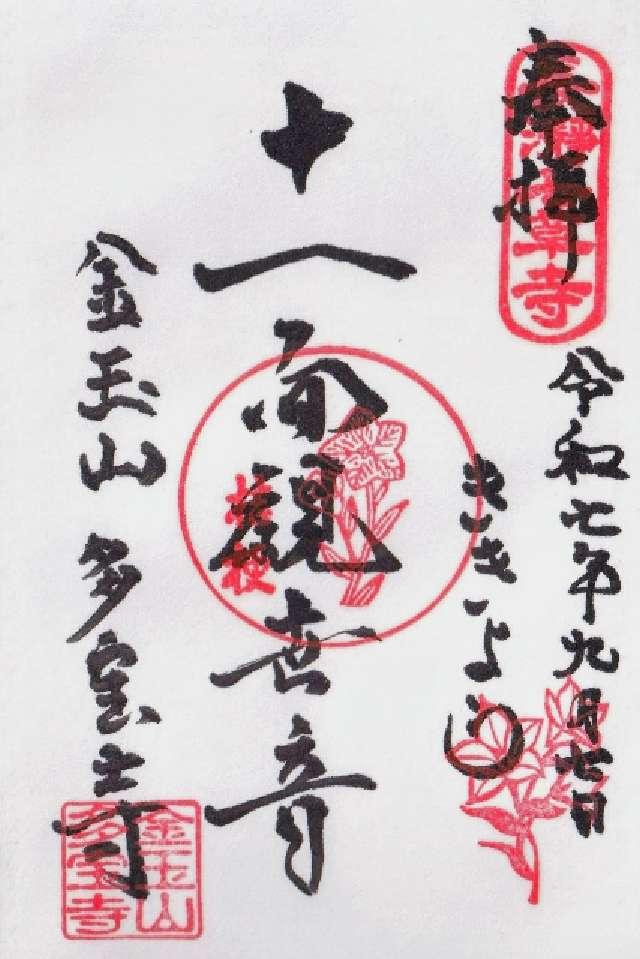 奉拝
長瀞七草寺
令和七年九月七日
ききょう
十一面觀世音
桔梗
金玉山 多宝寺
金玉山
多宝寺